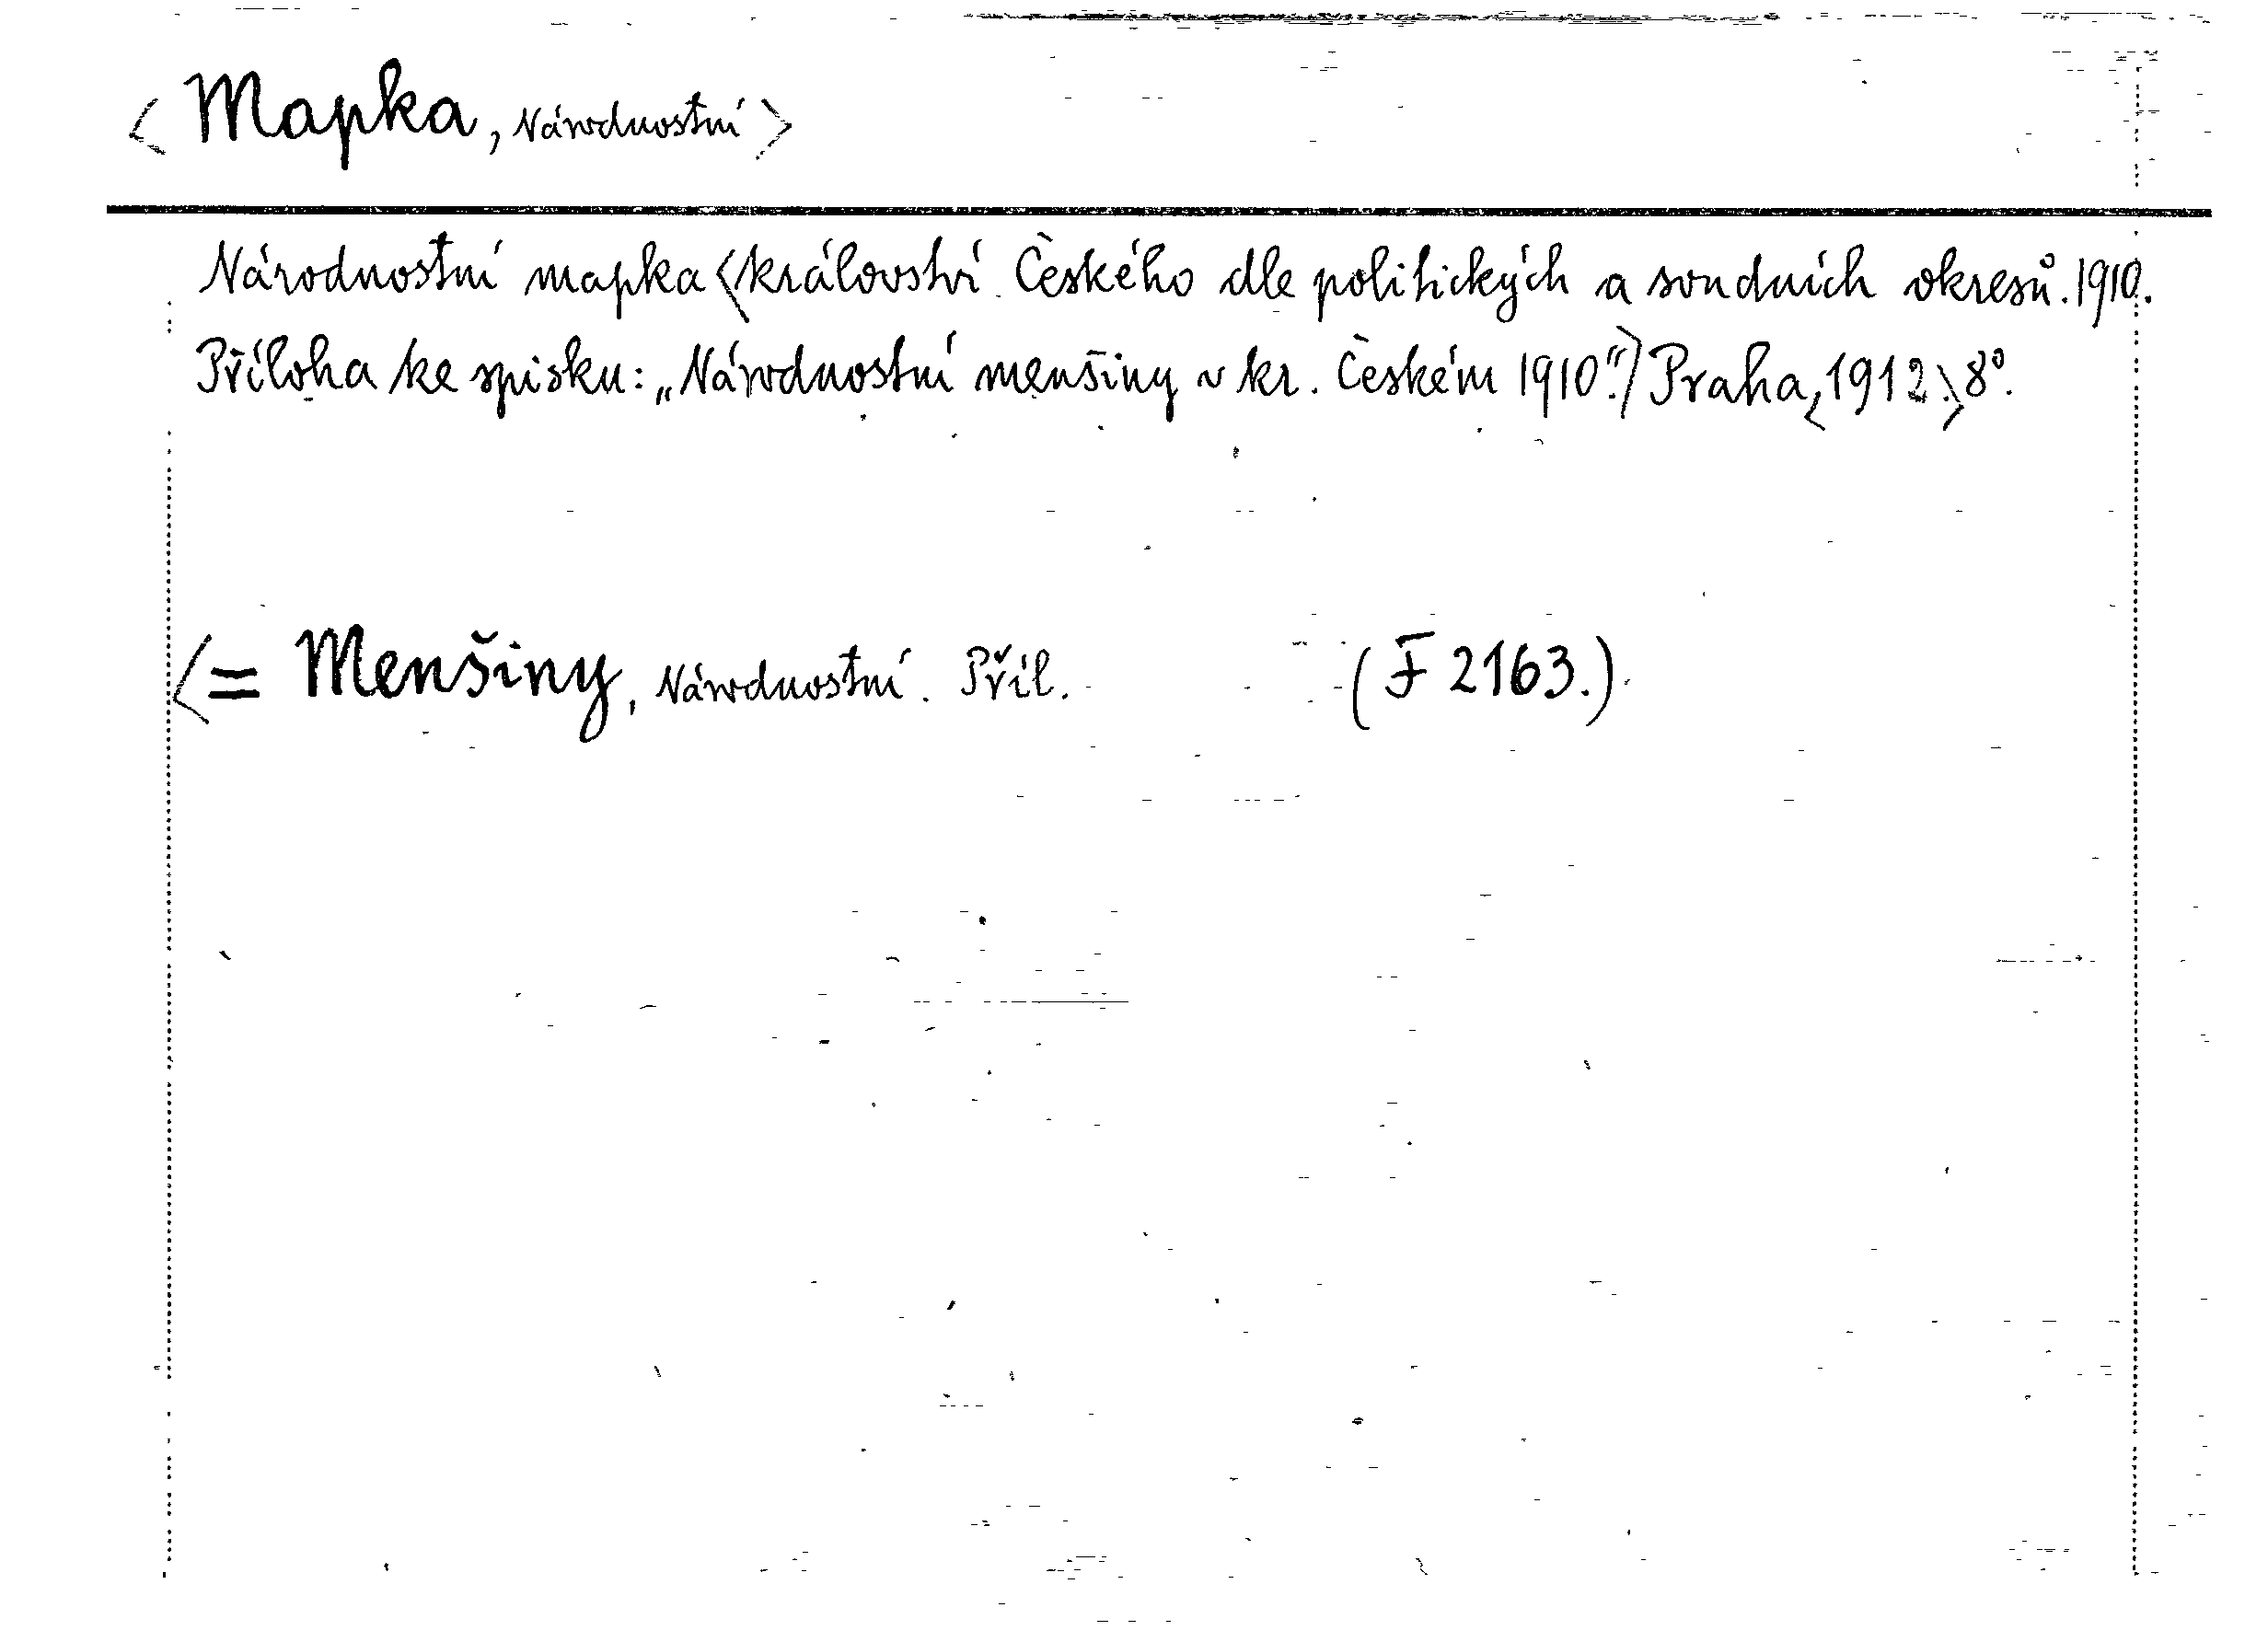 <Mapka, Národnostní>
Národnostní mapka <království Českého dle politických a soudních okresů. 1910.
Příloha ke spisku: „Národnostní menšiny v kr. Českém 1910“.> Praha, <1912.> 8°.
<= Menšiny, Národnostní. Příl. (F 2163.)